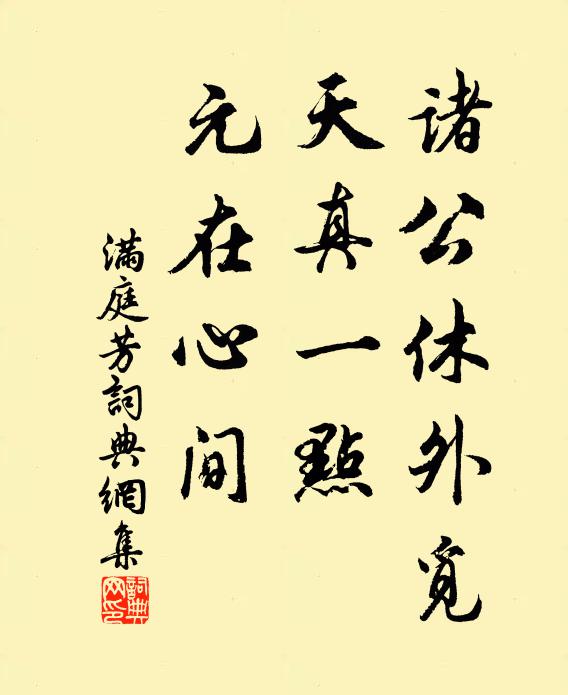 諸公休外覓
天真一點
元在心間
滿庭芳詞典網集
詞典网印